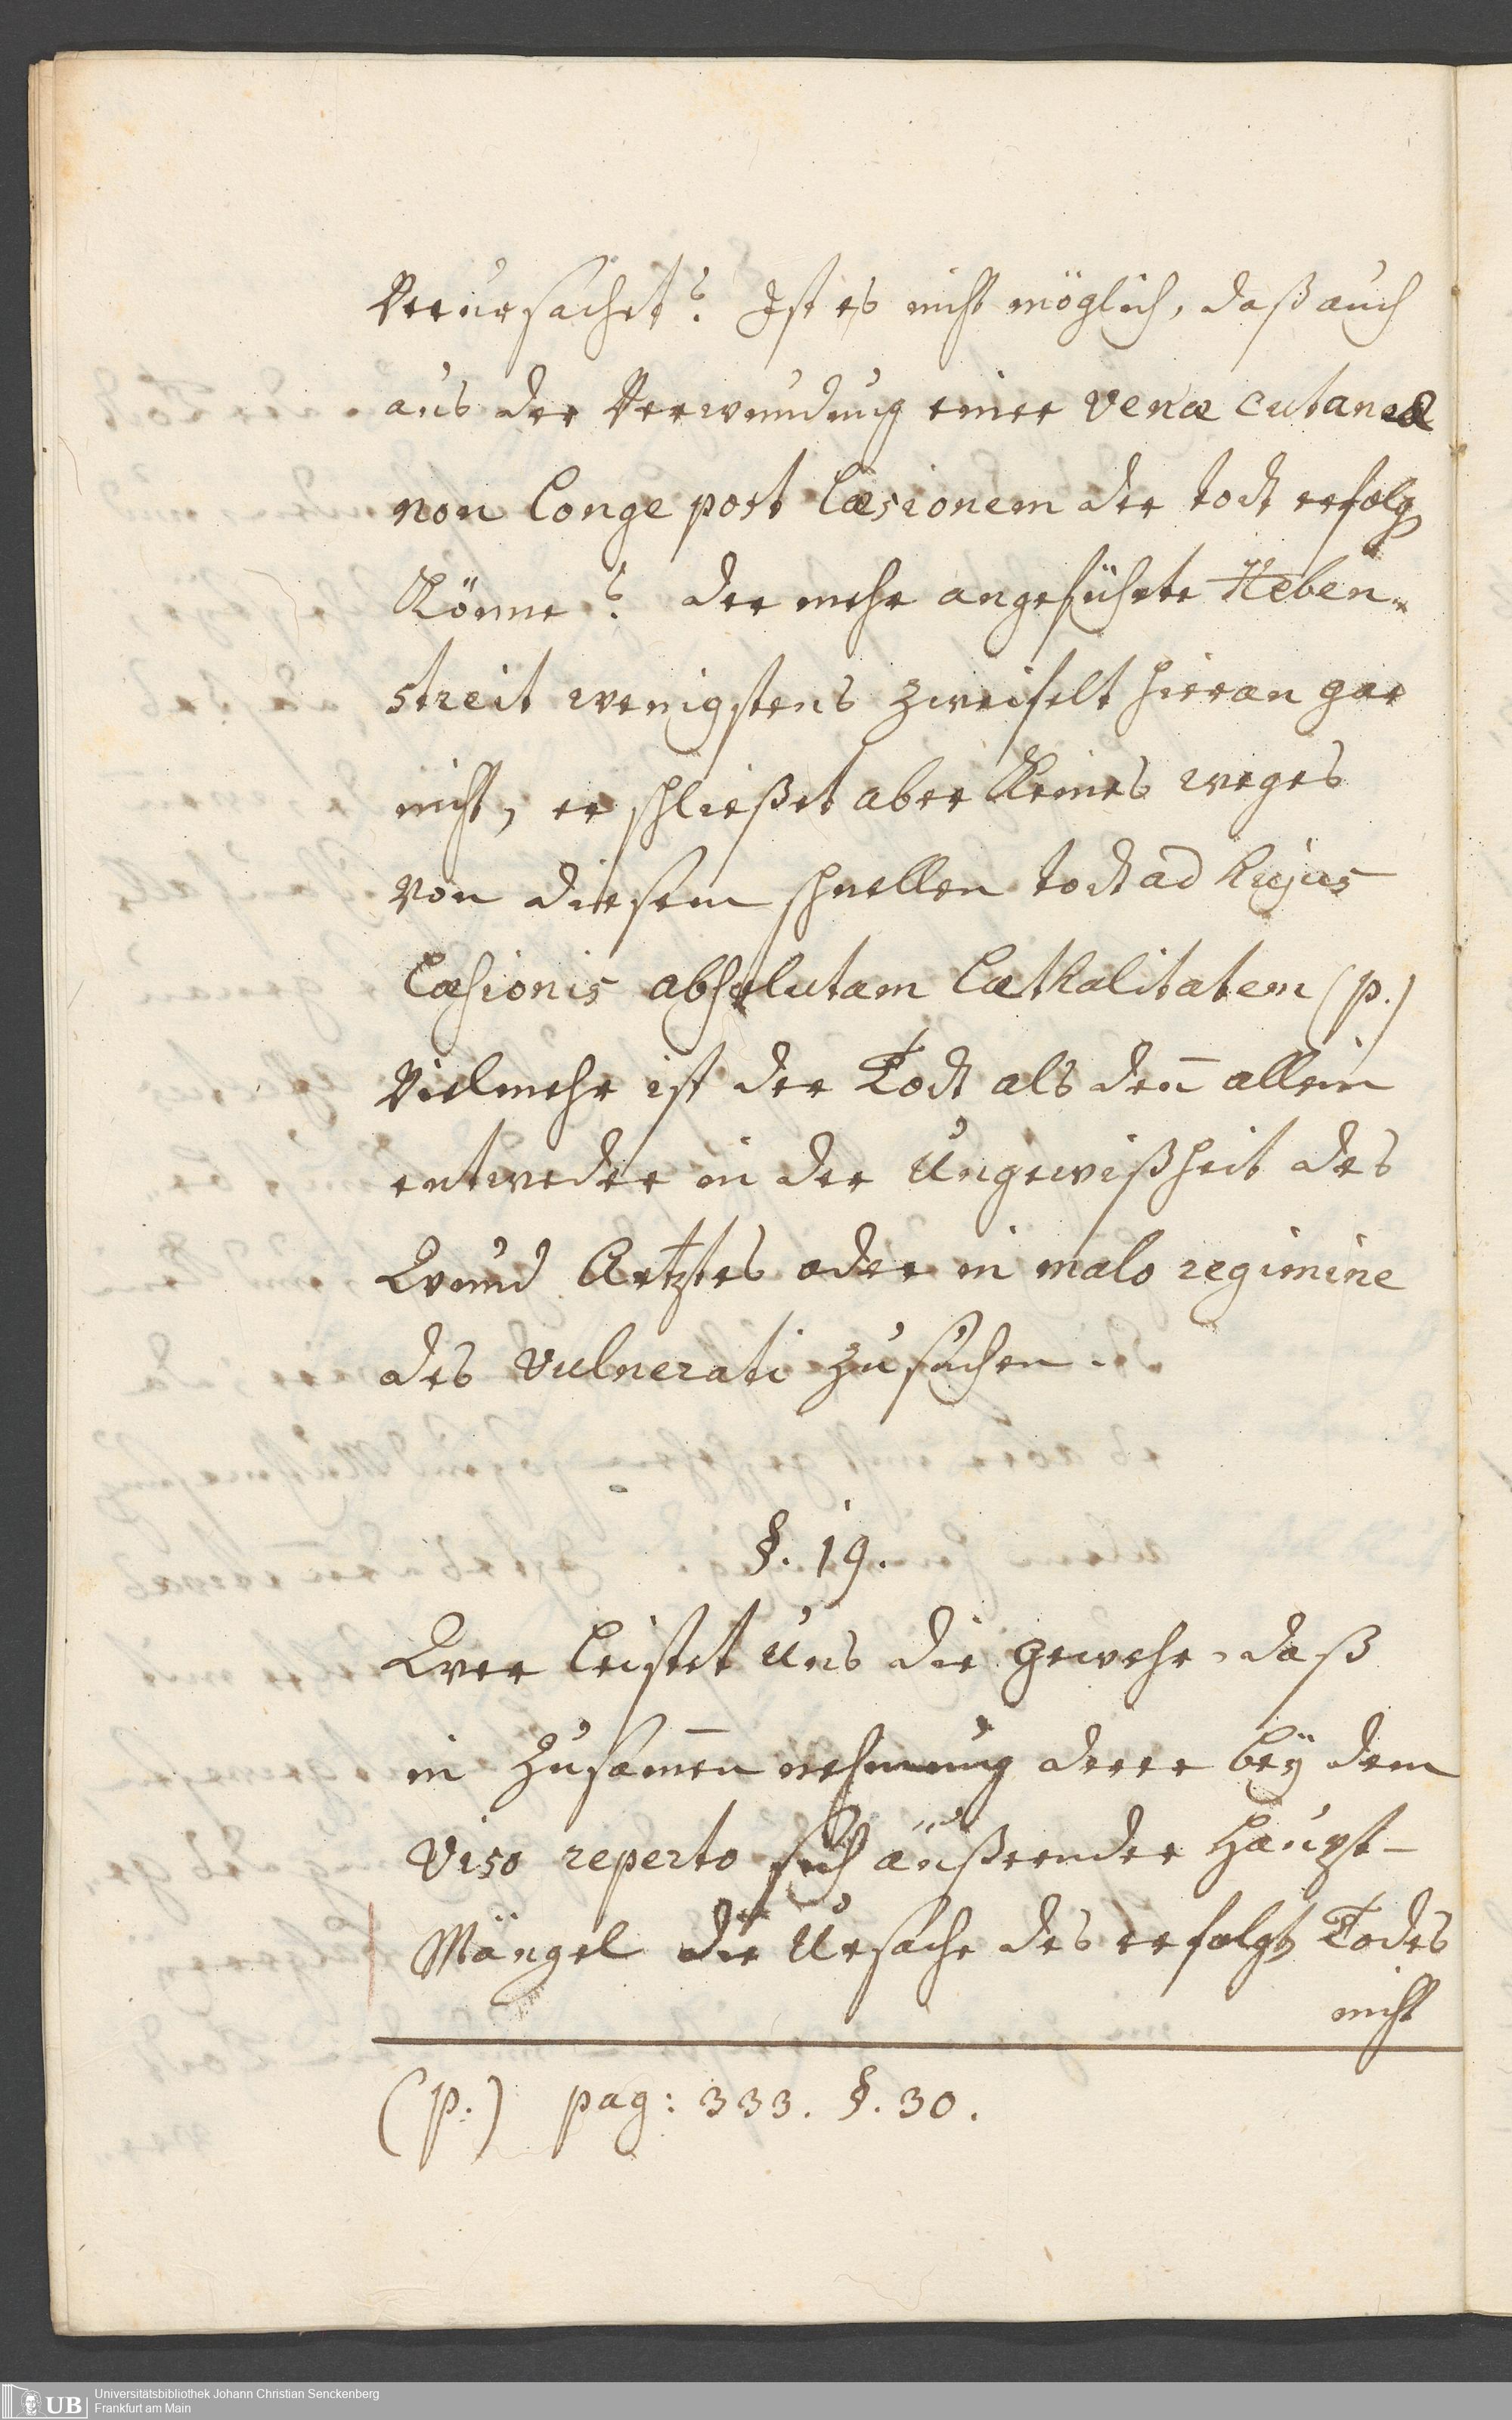 Verursachet? Ist es nicht möglich, daß auch
aus der Verwundung einer venæ cutaneæ
non longe post læsionem der todt erfolgen
könne? der mehr angeführte Heben-
streit wenigstens zweifelt hieran gar
nicht, er schließet aber keines weges
von diesem schnellen todt ad hujus
læsionis absolutam læthalitatem (p.)
Vielmehr ist der Todt als den̄ allein
entweder in der Ungewißheit des
Wund Artztes oder in malo regimine
des vulnerati zu suchen.
§. 19.
Wer leistet uns die gewehr, daß
in Zusam̄en nehmung derer bey dem
viso reperto sich äußernder Haupt-
Mängel die Ursache des erfolgten Todes
nicht
(p.) pag: 333. §. 30.
UB Universitätsbibliothek Johann Christian Senckenberg
Frankfurt am Main